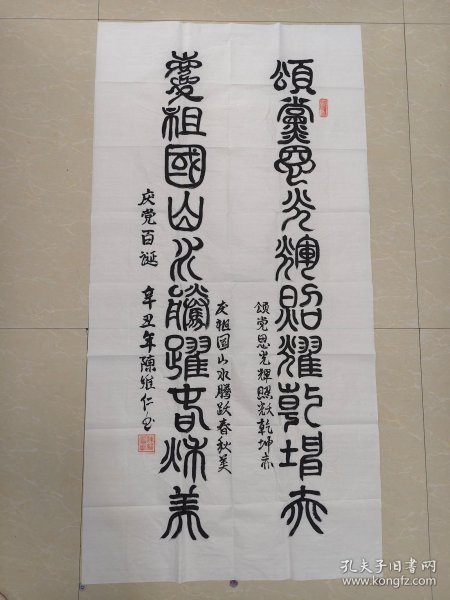 頌黨恩光輝照耀乾坤赤
頌党恩光輝照耀乾坤赤
愛祖國山水騰躍春秋美
爱祖国山水腾跃春秋美
庆党百诞 辛丑年陳維仁书
孔夫子旧书网
www.kongfz.com